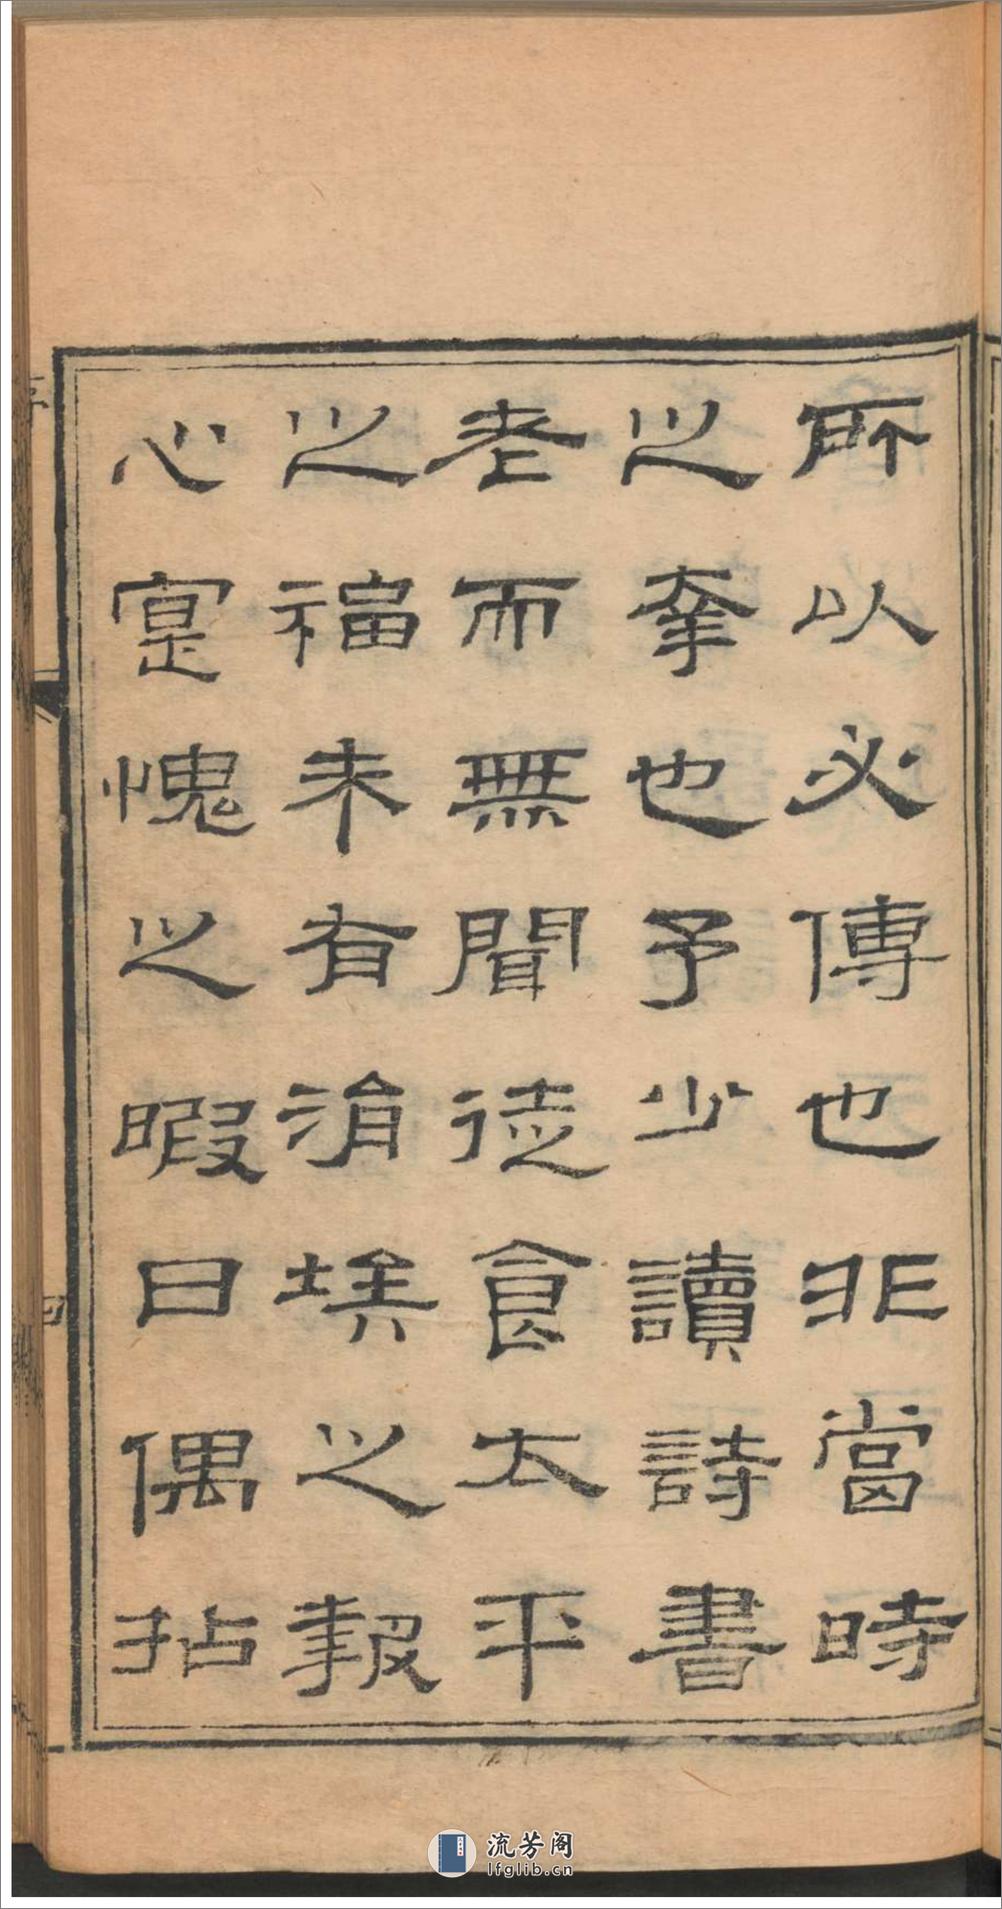 所以必傳也非當時
之幸也予少讀詩書
老而無聞徒食太平
之福未有涓埃之報
心寔愧之暇日偶拈
流芳阁
lfglib.cn